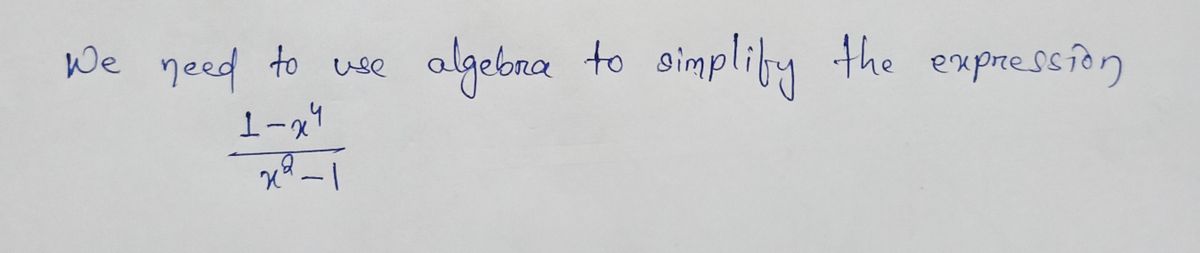 We need to use algebra to simplify the expression
1-x⁴
x²-1